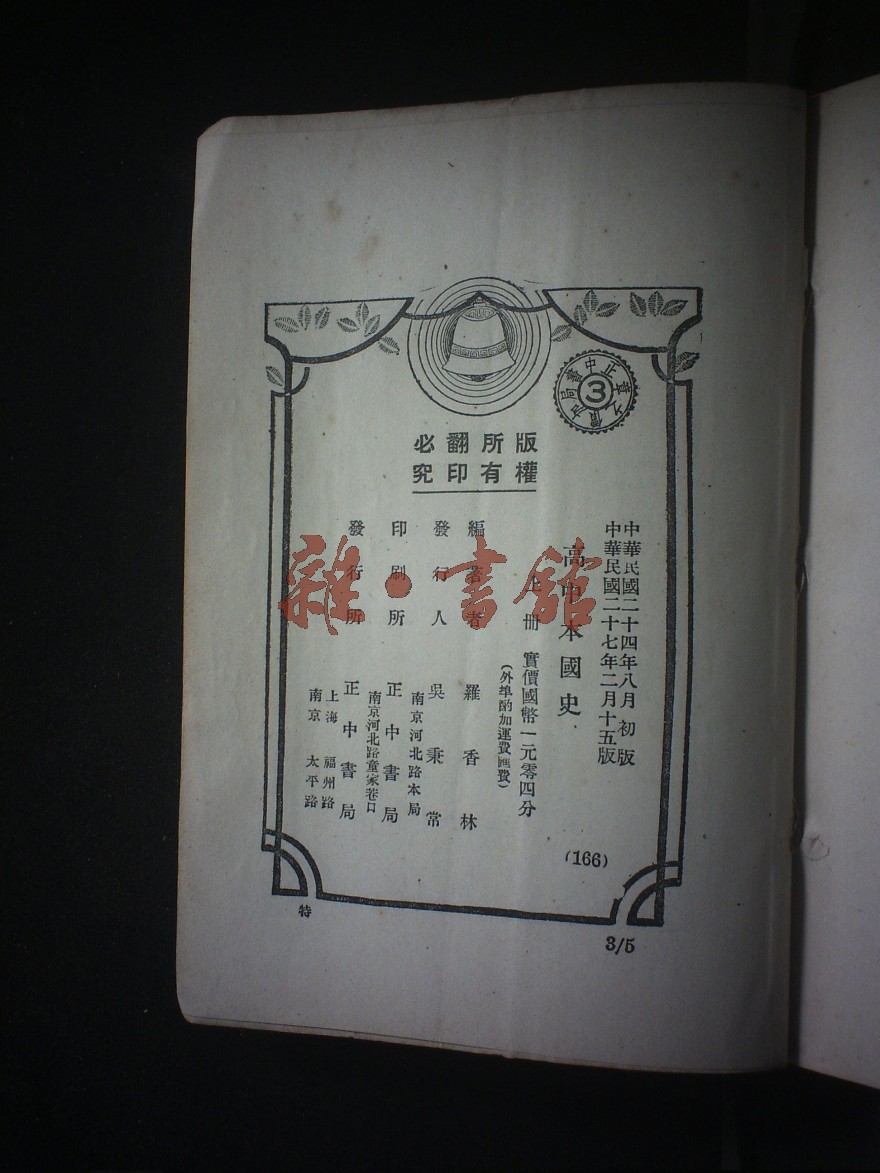 中華民國二十四年八月初版
中華民國二十七年二月十五版
高中本國史
上冊 實價國幣一元零四分
(外埠酌加運費匯費)
編著者 羅香林
發行人 吳秉常
南京河北路本局
印刷所 正中書局
南京河北路童家巷口
發行所 正中書局
上海 福州路
南京 太平路
版權所有
翻印必究
正中書局
3
(166)
特
3/5
雜·書館